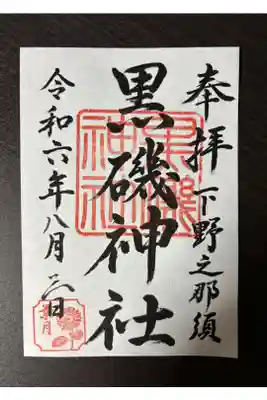 奉拝 下野之那須
黒磯神社
令和六年八月二日
黒磯神社
葉月